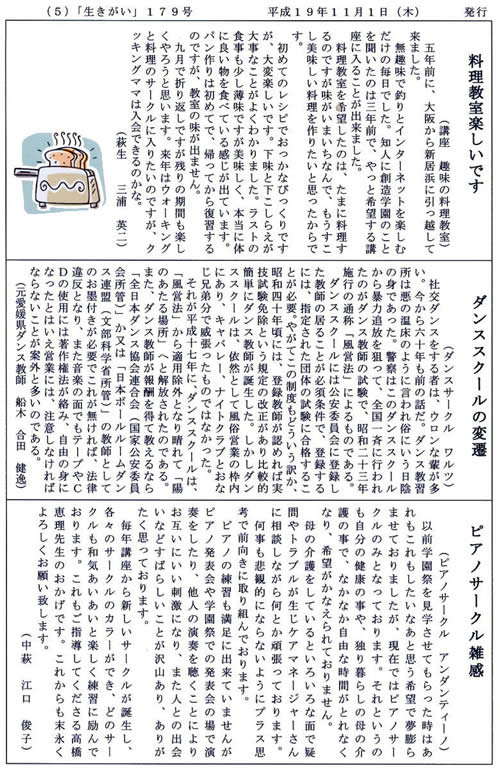 (5)「生きがい」179号　平成19年11月1日（木）　発行
料理教室楽しいです
（講座　趣味の料理教室）
五年前に、大阪から新居浜に引っ越して
来ました。
無趣味で釣りとインターネットを楽しむ
だけの毎日でした。知人に創造学園のこと
を聞いたのは三年前で、やっと希望する講
座に入ることが出来ました。
料理教室を希望したのは、たまに料理す
るのですが味がいまいちなんで、もうすこ
し美味しい料理を作りたいと思ったからで
す。
初めてのレシピでおっかなびっくりです
が、大変楽しいです。下味と下こしらえが
大事なことがよくわかりました。ラストの
食事も少し薄味ですが美味しく、本当に体
に良い物を食べている感じが出ています。
パン作りは初めてで、帰ってから復習する
のですが、教室の味が出ません。
九月で折り返しですが残りの期間も楽し
くやろうと思います。来年はウォーキング
と料理のサークルに入りたいのですが、ク
ッキングママは入会できるのかな。
（萩生　三浦　英二）
ダンススクールの変遷
（ダンスサークル　ワルツ）
社交ダンスをする者は、ウロンな輩が多
い。今から六十年も前の話だ。ダンス教習
所は悪の温床のように言われ俗にいう日陰
の身であった。警察はこのダンススクール
から暴力追放を狙って、全国一斉に行われ
たのがダンス教師の試験で、昭和二十三年
施行の通称「風営法」によるものである。
ダンススクールには公安委員会に登録し
た教師の居ることが必須条件で、登録する
には、指定された団体の試験に合格するこ
とが必要。やがてこの制度もどういう訳か、
昭和四十年頃には、登録教師が認めれば実
技試験免除という規定の改正があり比較的
簡単にダンス教師が誕生した。しかしダン
ススクールは、依然として風俗営業の枠内
にあり、キャバレー、ナイトクラブとおな
じ兄弟分で威張ったものではなかった。
それが平成十年に、ダンススクールは、
「風営法」から適用除外となり晴れて「陽
のあたる場所」へと解放されたのである。
また、ダンス教師が報酬を得て教えるなら
「全日本ダンス協会連合会（国家公安委員
会所管）」か又は「日本ボールルームダン
ス連盟（文部科学省所管）」の教師として
のお墨付きが必要でこれが無ければ、法律
違反となり、また音楽の面でもテープやＣ
Ｄの使用には著作権法が絡み、自由の身に
なったとはいえ営業には、注意しなければ
ならないことが案外と多いのである。
（元愛媛県ダンス教師　船木　合田　健逸）
ピアノサークル雑感
（ピアノサークル　アンダンティーノ）
以前学園祭を見学させてもらった時はあ
れもこれもしたいなあと思う希望で夢膨ら
ませておりましたが、現在ではピアノサー
クルのみとなっております。それというの
も自分の健康の事や、独り暮らしの母の介
護の事で、なかなか自由な時間がとれなく
なり、希望がかなえられておりません。
母の介護をしているといろいろな面で疑
問やトラブルが生じケアマネージャーさん
に相談しながら何とか頑張っております。
何事も悲観的にならないようにプラス思
考で前向きに取り組んでおります。
ピアノの練習も満足に出来ていませんが
ピアノ発表会や学園祭での発表会の場で演
奏をしたり、他人の演奏を聴くことにより
お互いにいい刺激になり、また人との出会
いなどすばらしいことが沢山あり、ありが
たく思っております。
毎年講座から新しいサークルが誕生し、
各々のサークルのカラーができ、どのサー
クルも和気あいあいと楽しく練習に励んで
おります。これもご指導してくださる高橋
恵理先生のおかげです。これからも末永く
よろしくお願い致します。
（中萩　江口　俊子）